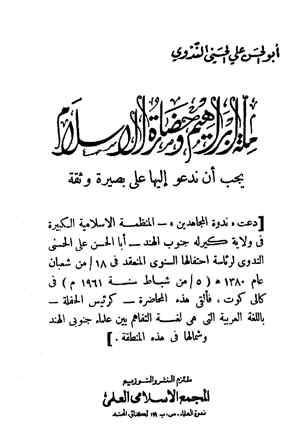 أبو الحسن علي الحسني الندوي
ملة إبراهيم وحضارة الإسلام
يجب أن ندعو إليها على بصيرة وثقة
[ دعت « ندوة المجاهدين » – المنظمة الاسلامية الكبيرة
فى ولاية كيرله جنوب الهند – أبا الحسن على الحسنى
الندوى لرئاسة احتفالها السنوى المنعقد فى ١٨/ من شعبان
عام ١٣٨٠ ه ( ٥/ من شباط سنة ١٩٦١ م ) فى
كالى كوت ، فألقى هذه المحاضرة – كرئيس الحفلة –
باللغة العربية التى هى لغة التفاهم بين علماء جنوبى الهند
وشمالها فى هذه المنطقة . ]
ملتزم النشر والتوزيع
المجمع الاسلامى العلمى
ندوة العلماء، ص ب ١١٩ لكهنؤ، الهند